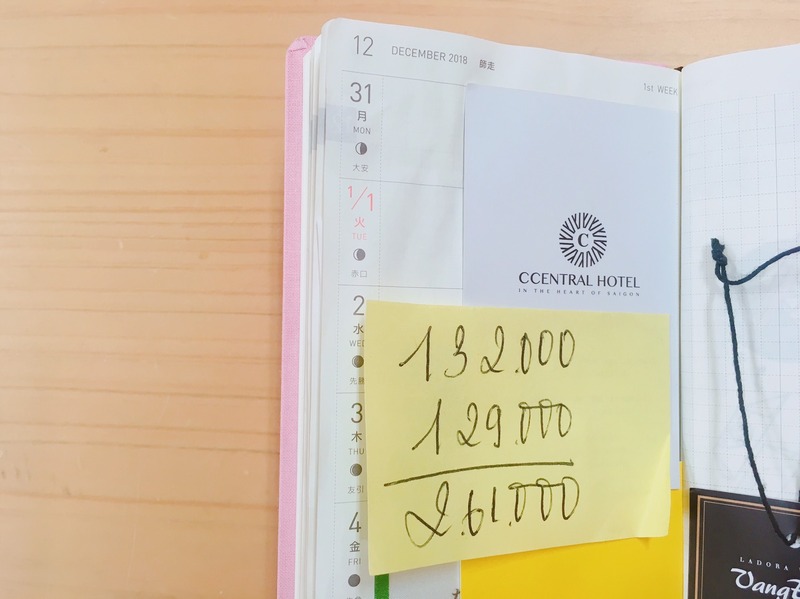 12 DECEMBER 2018 師走
1st WEEK
31
月
MON
大安
1/1
火
TUE
赤口
2
水
WED
先勝
3
木
THU
友引
4
金
FRI
C
CCENTRAL HOTEL
IN THE HEART OF SAIGON
132.000
129.000
261.000
LADORA
Vang